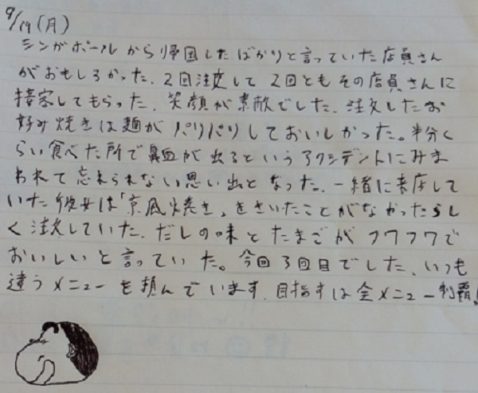 9/19(月)
シンガポールから帰国したばかりと言っていた店員さん
がおもしろかった。2回注文して2回ともその店員さんに
接客してもらった。笑顔が素敵でした。注文したお
好み焼きは麺がパリパリしておいしかった。半分く
らい食べた所で鼻血が出るというアクシデントにみま
われて忘れられない思い出となった。一緒に来店して
いた彼女は「京風焼き」をきいたことがなかったらし
く注文していた。だしの味とたまごがフワフワで
おいしいと言っていた。今回3回目でした。いつも
違うメニューを頼んでいます。目指すは全メニュー制覇!